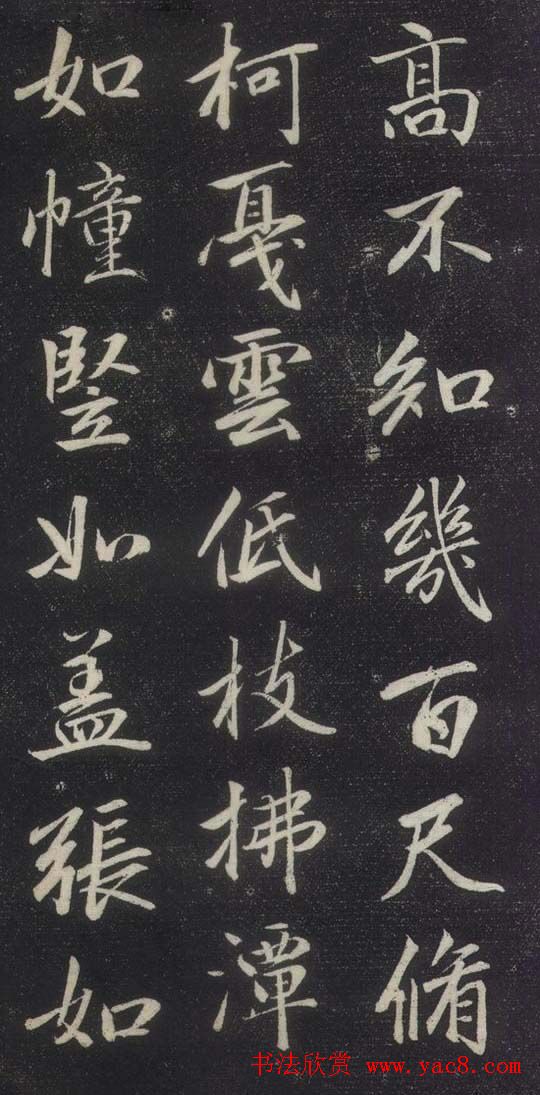 高不知幾百尺脩
柯戛雲低枝拂潭
如幢竪如盖張如
书法欣赏 www.yac8.com